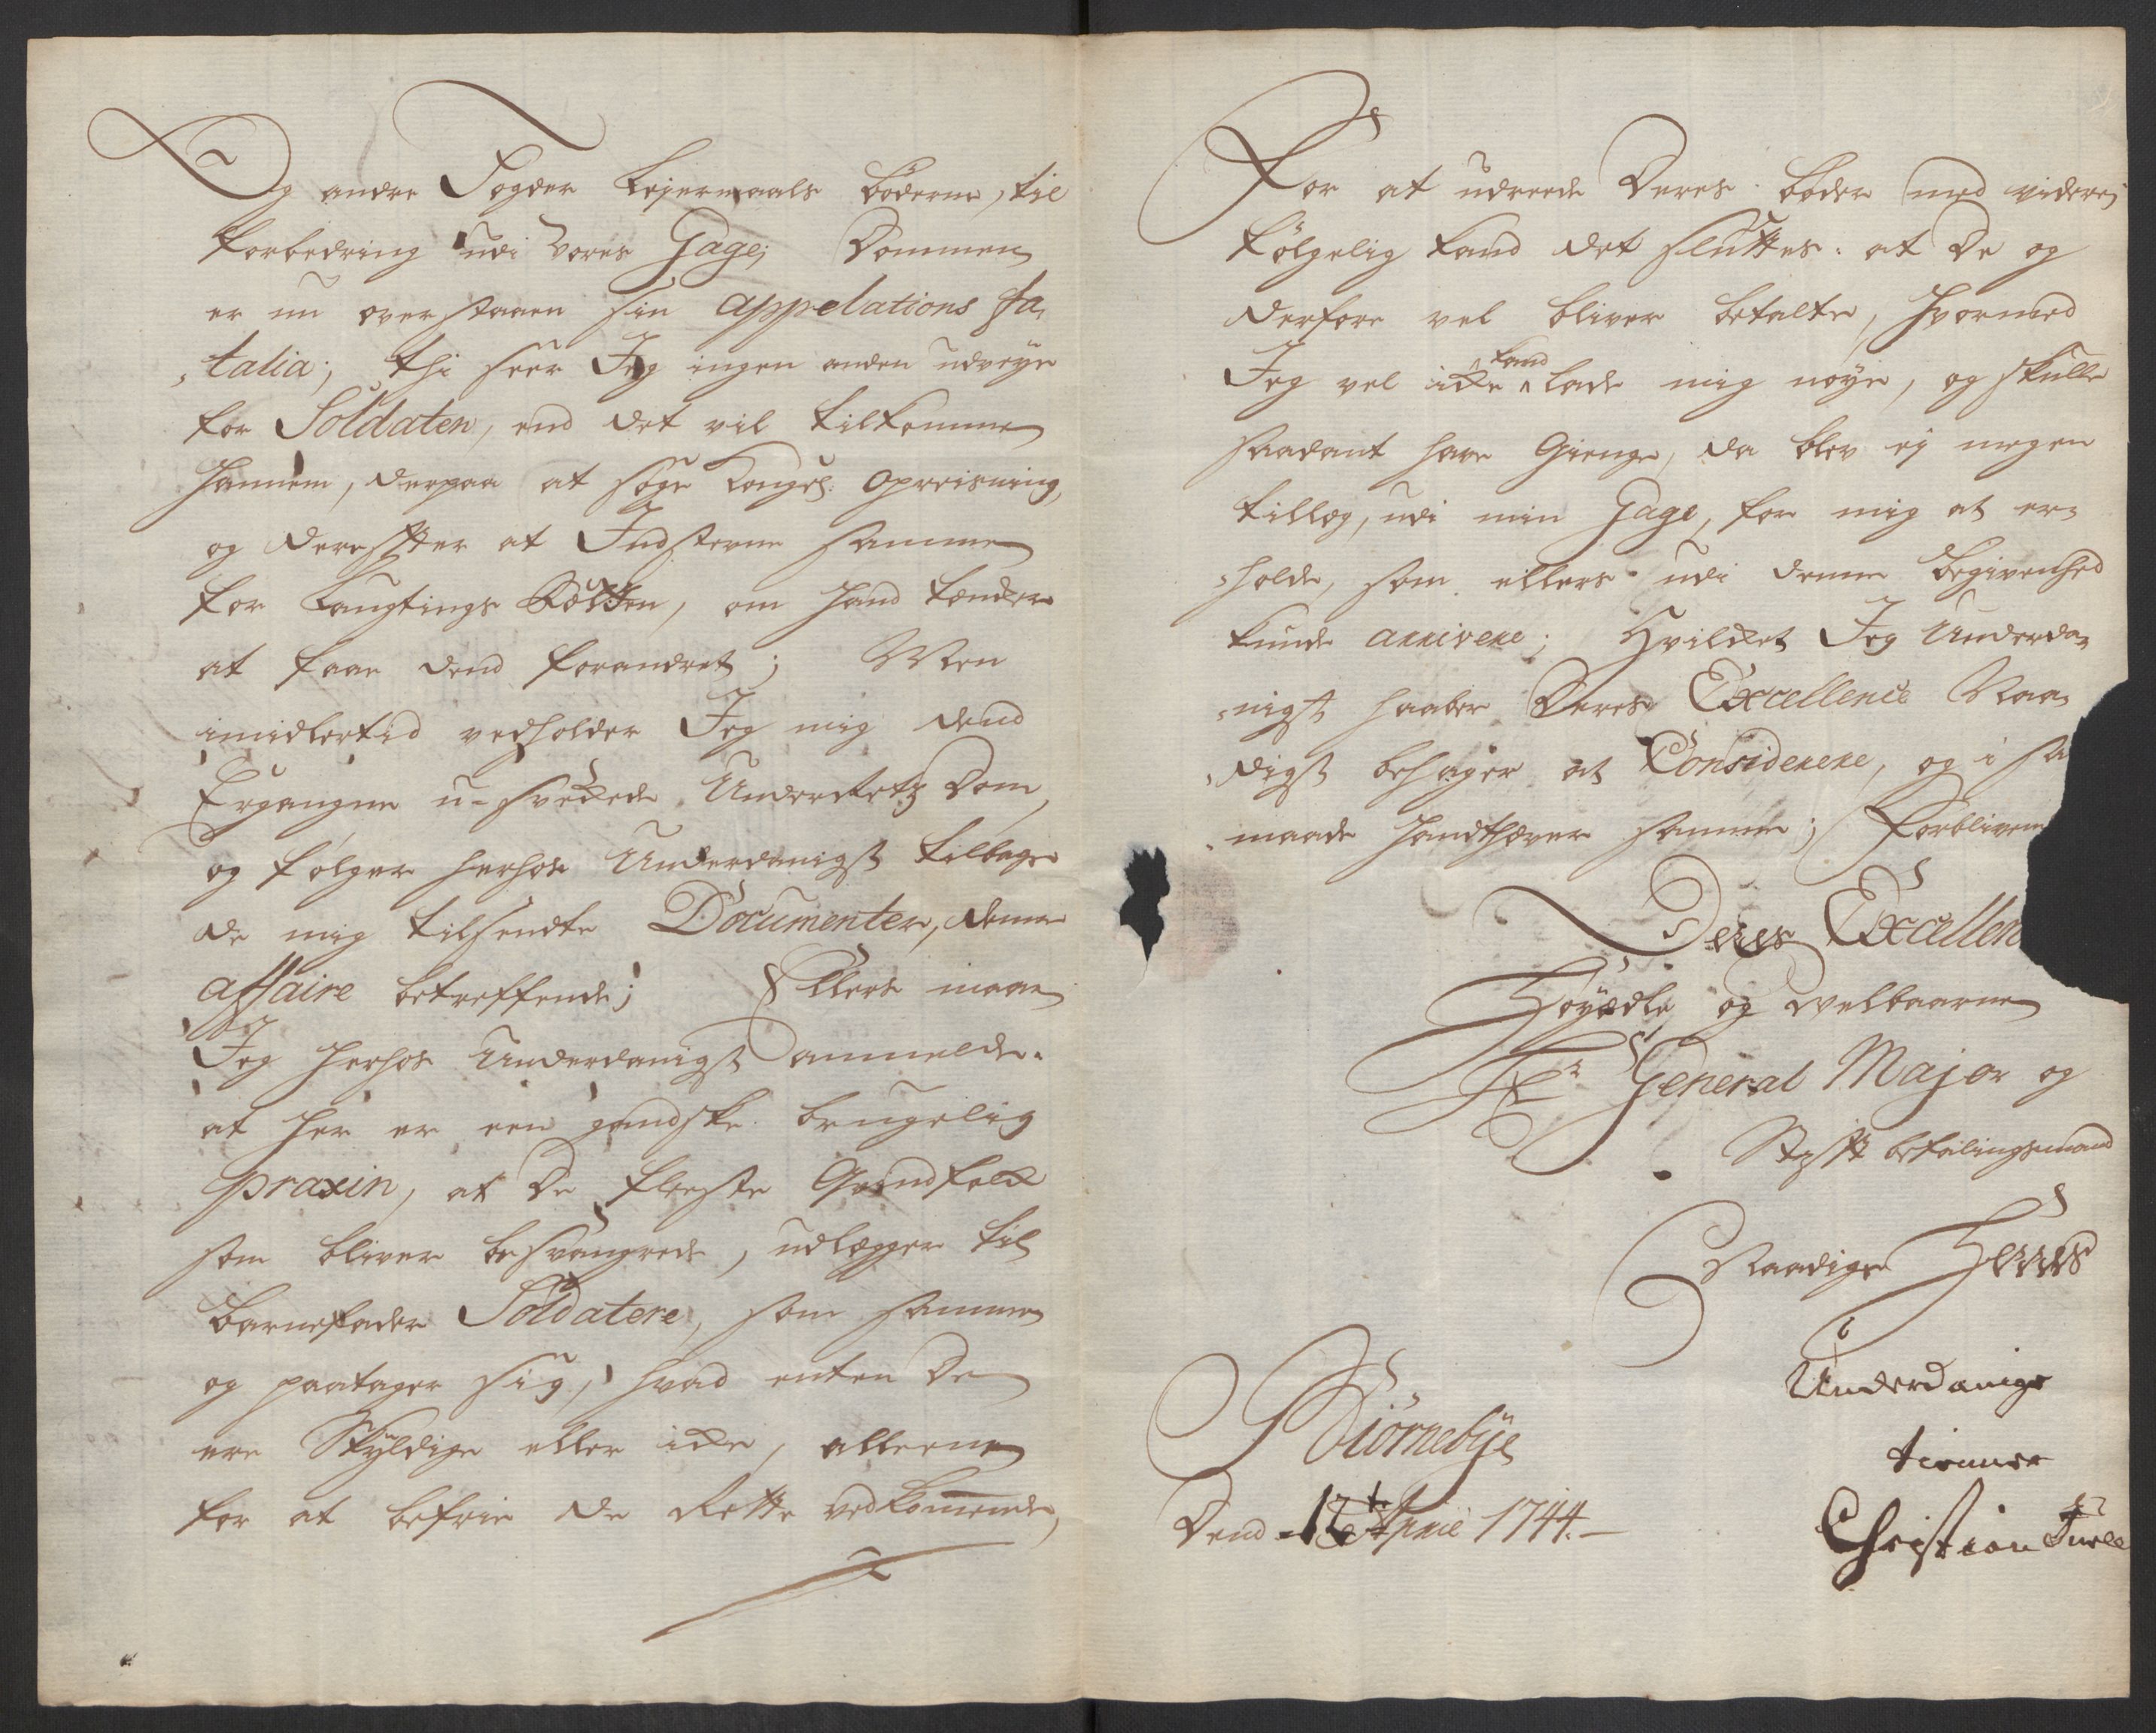 Og andre Fogder Leyermaals bøderne, til
forbedring udi vores Gage; Dommen
er nu overstaaen sin appelations fa„
„talia; thi seer Jeg ingen anden udveye
for Soldaten, end det vil tilkomme
hannem, derpaa at søge Kongel: Opreisning,
og derefter at Indstevne samme
for Laugtings Rætten, om hand kender
at faae dend forandret; Men
imidlertid vedholder Jeg mig dend
Ergangne u-svekede Underretz Dom,
og følger herhos Underdanigst tilbage
de mig tilsendte Documenter, denne
affaire betreffende; Ellers maae
Jeg herhos Underdanigst anmelde.
at her er een gandske brugelig
praxin, at De fleeste Qvindfolk
som bliver besvangrede, udlægger til
Barnefader Soldatere, som samme
og paatager sig, hvad enten De
ere Skyldige eller icke, alleene
for at befrie de Rette vedkommende,
For at udreede Deres bøder med videre;
følgelig kand det sluttes: at De og
derfore vel bliver betalte, hvormed
Jeg vel icke kand lade mig nøye, og skulle
saadant have Gienge, da blev ej megen
tillæg, udi min Gage, for mig at er„
„holde, som ellers udi denne begivenhed
kunde arrivere; Hvilket Jeg Underda„
„nigst haaber Deres Excellence Naa„
„digst behager at Considerere, og i sa
maade handthæver samme; Forbliven
Deres Excellen
Høyædle og Velbaarne
Hr General Major og
Stift befalingsmand
Naadige Herres
Underdanige
tienner
Biørnebye
Dend 12t April 1744.
Christian